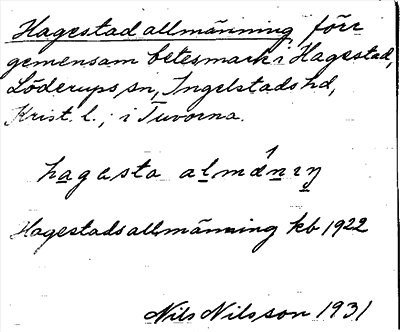 Hagestad allmänning förr
gemensam betesmark i Hagestad,
Löderups sn, Ingelstads hd,
Krist. l.; i Tuvorna.
hagesta almániŋ
Hagestads allmänning kb 1922
Nils Nilsson 1931